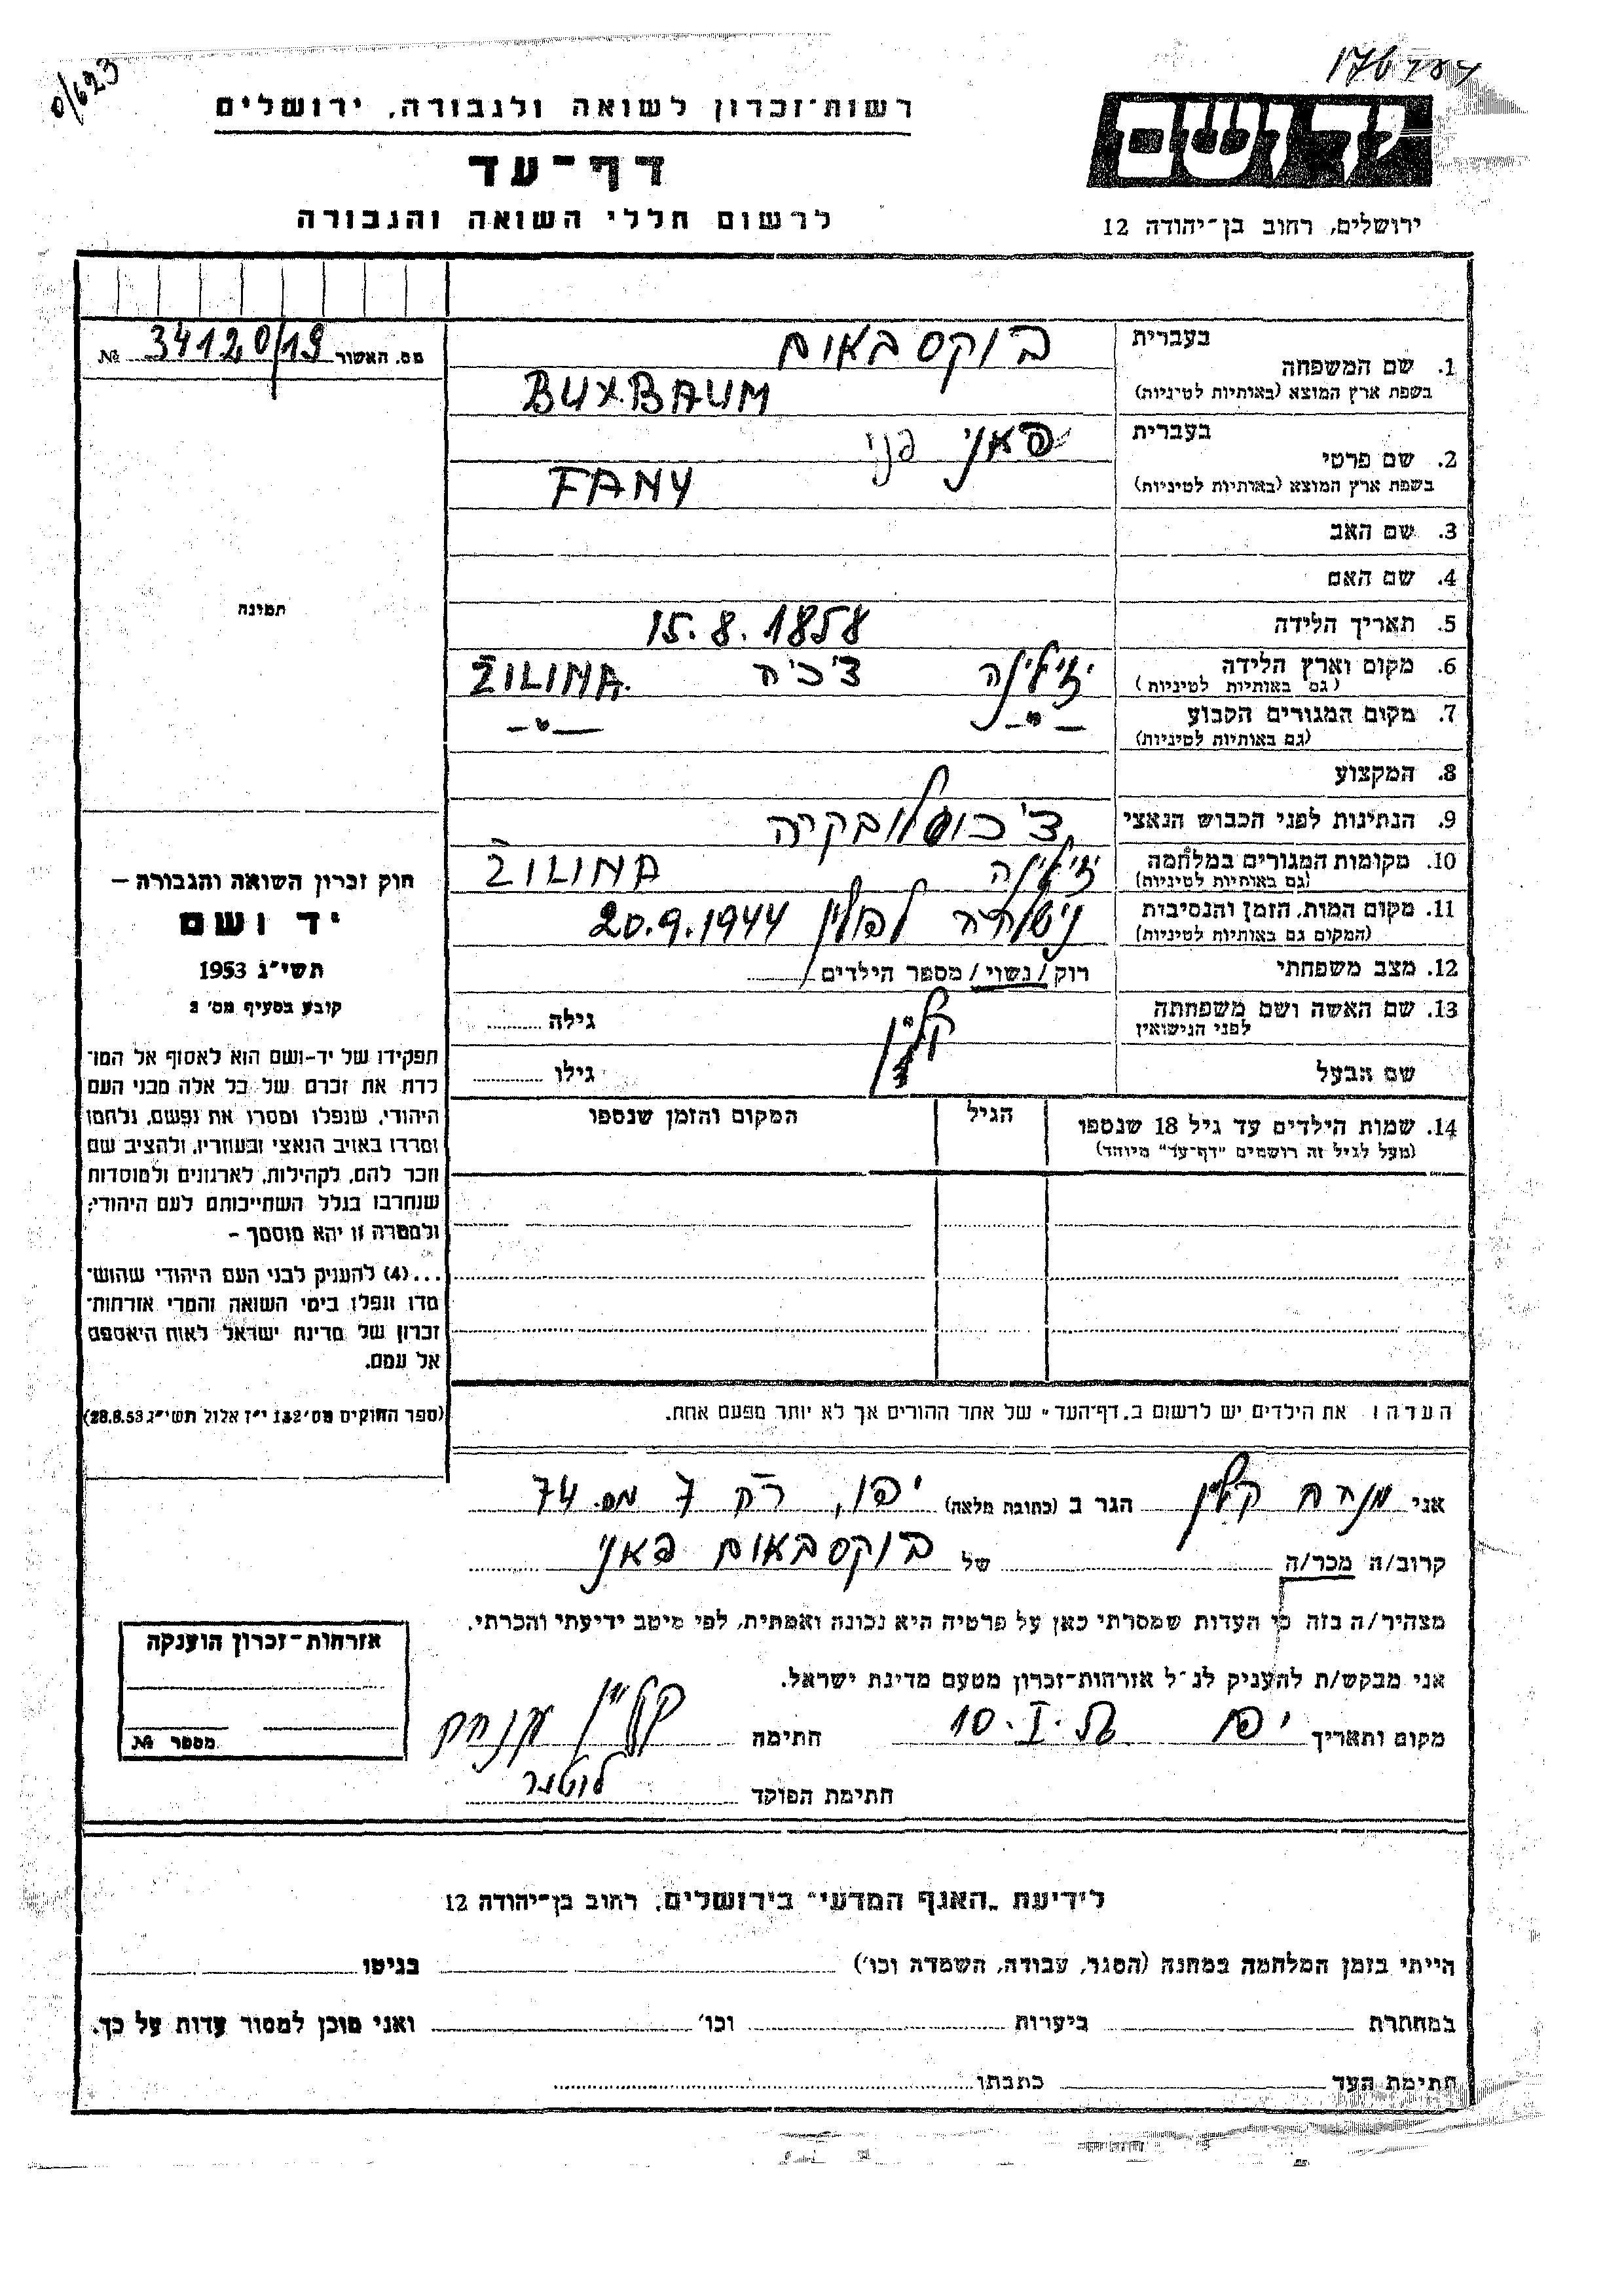 0/623
רשות-זכרון לשואה ולגבורה, ירושלים
דף-עד
לרשום חללי השואה והגבורה
ירושלים, רחוב בן-יהודה 12
מס. האשור 34120/19 №
תמונה
חוק זכרון השואה והגבורה —
יד ושם
תשי״ג 1953
קובע בסעיף מס׳ 2
תפקידו של יד-ושם הוא לאסוף אל המו־
לדת את זכרם של כל אלה מבני העם
היהודי, שנפלו ומסרו את נפשם, נלחמו
ומרדו באויב הנאצי ובעוזריו, ולהציב שם
וזכר להם, לקהילות, לארגונים ולמוסדות
שנחרבו בגלל השתייכותם לעם היהודי;
ולמטרה זו יהא מוסמך —
...(4) להעניק לבני העם היהודי שהוש־
מדו ונפלו בימי השואה והמרי אזרחות־
זכרון של מדינת ישראל לאות היאספם
אל עמם.
(ספר החוקים מס׳ 132 י״ז אלול תשי״ג 28.8.53)
בעברית בוקסבאום
1. שם המשפחה
בשפת ארץ המוצא (באותיות לטיניות) BUXBAUM
בעברית פאני פני
2. שם פרטי
בשפת ארץ המוצא (באותיות לטיניות) FANY
3. שם האב
4. שם האם
5. תאריך הלידה 15.8.1858
6. מקום וארץ הלידה ז׳ילינה צ׳כיה ŽILINA
(גם באותיות לטיניות)
7. מקום המגורים הקבוע
(גם באותיות לטיניות)
8. המקצוע
9. הנתינות לפני הכבוש הנאצי צ׳כוסלובקיה
10. מקומות המגורים במלחמה ז׳ילינה ŽILINA
(גם באותיות לטיניות)
11. מקום המות, הזמן והנסיבות נישלחה לפולין 20.9.1944
(המקום גם באותיות לטיניות)
12. מצב משפחתי רווק / נשוי / מספר הילדים
13. שם האשה ושם משפחתה קליין גילה
לפני הנישואין
שם הבעל גילו
14. שמות הילדים עד גיל 18 שנספו הגיל המקום והזמן שנספו
(מעל לגיל זה רושמים "דף-עד" מיוחד)
הערה: את הילדים יש לרשום ב„דף-העד" של אחד ההורים אך לא יותר מפעם אחת.
אני קליין הגר ב (כתובת מלאה) יפו, רח 7 מס. 74
קרוב/ה מכר/ה של בוקסבאום פאני
מצהיר/ה בזה כי העדות שמסרתי כאן על פרטיה היא נכונה ואמתית, לפי מיטב ידיעתי והכרתי.
אני מבקש/ת להעניק לנ״ל אזרחות-זכרון מטעם מדינת ישראל.
מקום ותאריך יפו 10.I. חתימה קליין
חתימת הפוקד
אזרחות-זכרון הוענקה
מספר №
לידיעת „האגף המדעי" בירושלים, רחוב בן-יהודה 12
הייתי בזמן המלחמה במחנה (הסגר, עבודה, השמדה וכו׳) בגיטו
במחתרת ביערות וכו׳ ואני מוכן למסור עדות על כך.
חתימת העד כתבתו